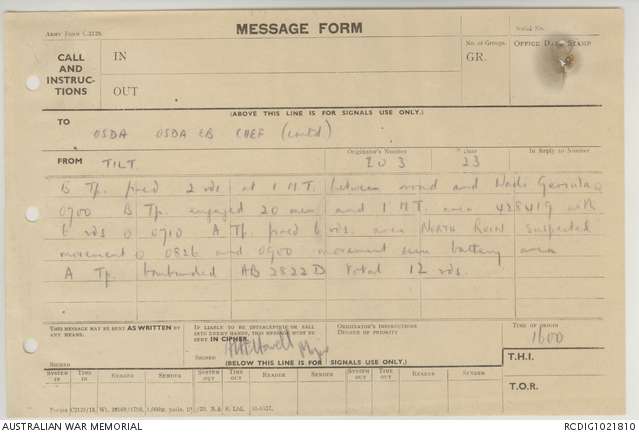 Army Form C.2128.
MESSAGE FORM
Serial No.
CALL AND INSTRUCTIONS
IN
OUT
No. of Groups.
GR.
OFFICE DATE STAMP
(ABOVE THIS LINE IS FOR SIGNALS USE ONLY.)
TO
OSDA OSDA CB (contd)
FROM
TILT
Originator's Number
203
Date
23
In Reply to Number
B Tp. fired 2 rds at 1 M.T. between and Wadi
0900 B Tp. engaged 20 men and 1 M.T. area 428419 with
6 rds 0710 A Tp. fired 6 rds. area NORTH suspected
movement 0826 and 0900 movement battery area
A Tp. bombarded AB 2822 D total 12 rds.
THIS MESSAGE MAY BE SENT AS WRITTEN BY ANY MEANS.
SIGNED
IF LIABLE TO BE INTERCEPTED OR FALL INTO ENEMY HANDS, THIS MESSAGE MUST BE SENT IN CIPHER.
SIGNED
ORIGINATOR'S INSTRUCTIONS
DEGREE OF PRIORITY
TIME OF ORIGIN
1600
(BELOW THIS LINE IS FOR SIGNALS USE ONLY.)
T.H.I.
SYSTEM IN
TIME IN
READER
SENDER
SYSTEM OUT
TIME OUT
READER
SENDER
SYSTEM OUT
TIME OUT
READER
SENDER
T.O.R.
AUSTRALIAN WAR MEMORIAL
RCDIG1021810